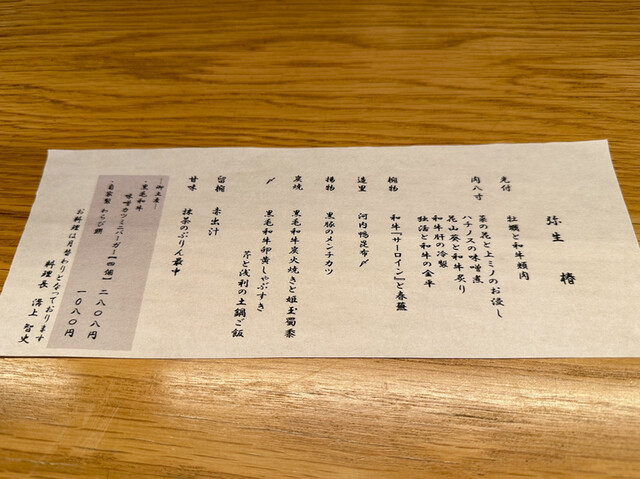 弥生 椿
先付 牡蠣と和牛頬肉
肉八寸 菜の花と上ミノのお浸し
ハチノスの味噌煮
花山葵と和牛炙り
和牛肝の冷製
独活と和牛の金平
椀物 和牛「サーロイン」と春蕪
造里 河内鴨昆布〆
揚物 黒豚のメンチカツ
炭焼 黒毛和牛炭火焼きと姫玉蜀黍
〆 黒毛和牛卵黄しゃぶすき
芹と浅利の土鍋ご飯
留椀 赤出汁
甘味 抹茶のぷりん最中
－御土産－
・黒毛和牛
味噌カツミニバーガー【四個】 二八〇八円
・自家製 わらび餅 一〇八〇円
お料理は月替わりとなっております
料理長 溝上 智史